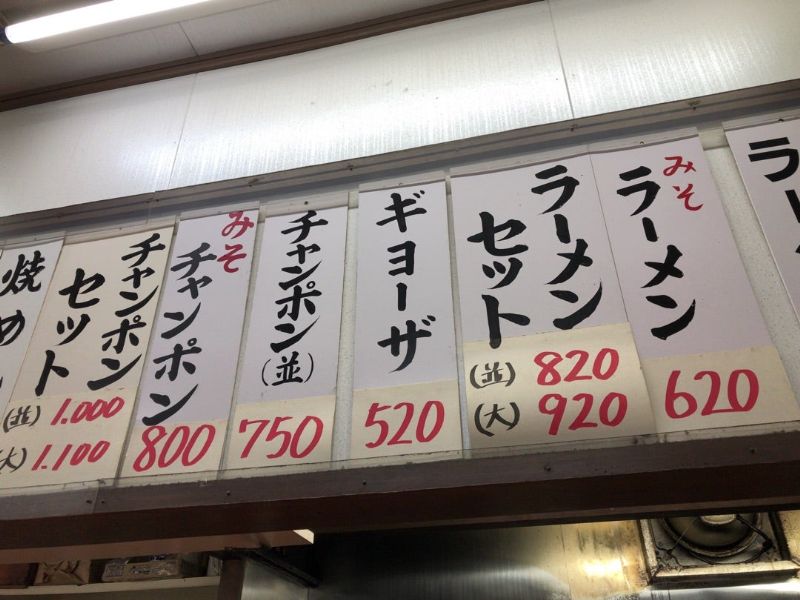 ラー
みそ
ラーメン
620
ラーメン
セット
(並) 820
(大) 920
ギョーザ
520
チャンポン
(並)
750
みそ
チャンポン
800
チャンポン
セット
(並) 1.000
(大) 1.100
焼め